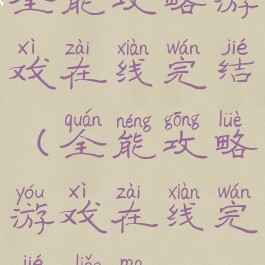 全能攻略游
xì zài xiàn wán jié
戏在线完结
quán néng gōng lüè
(全能攻略
yóu xì zài xiàn wán
游戏在线完
jié liǎo ma